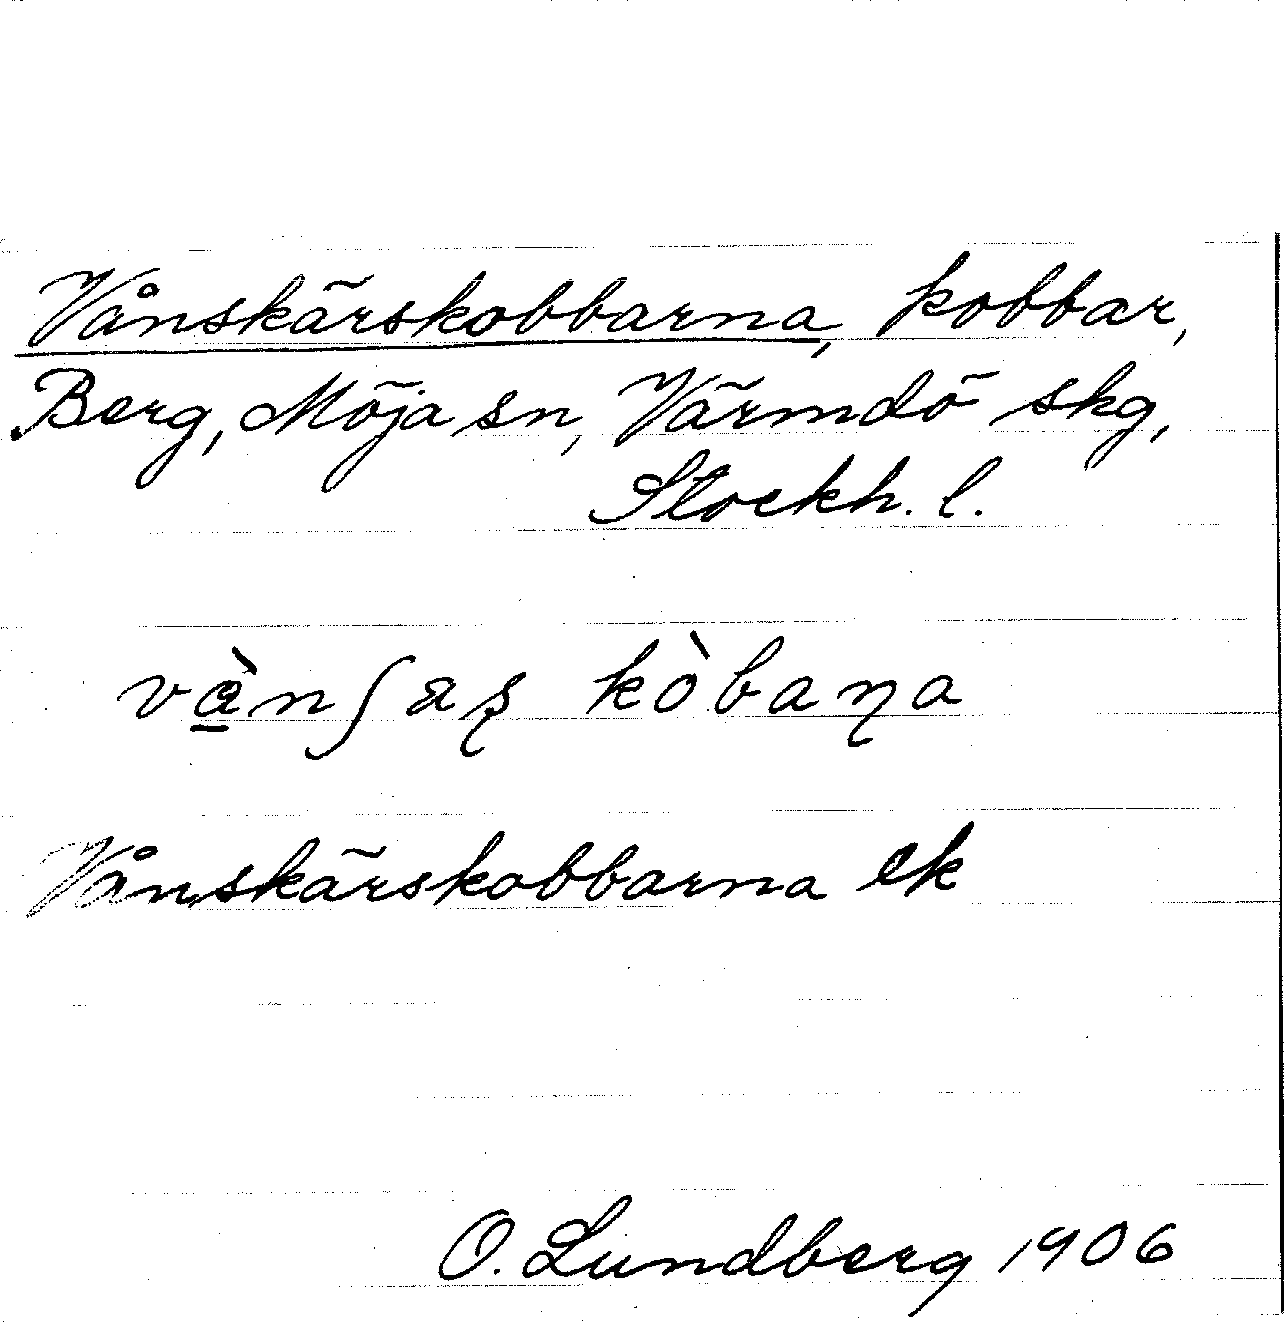 Vånskärskobbarna, kobbar,
Berg, Möja sn, Värmdö skg,
Stockh. l.
vànʃaʂ kòbaɳa
Vånskärskobbarna ek
O. Lundberg 1906